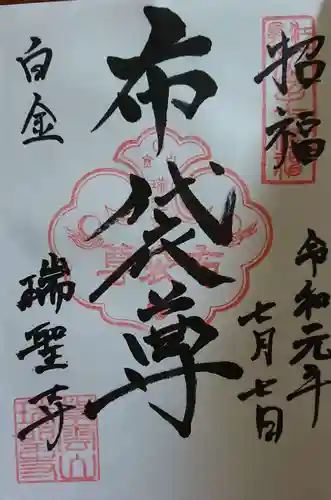 招福
令和元年
七月七日
布袋尊
白金
瑞聖寺